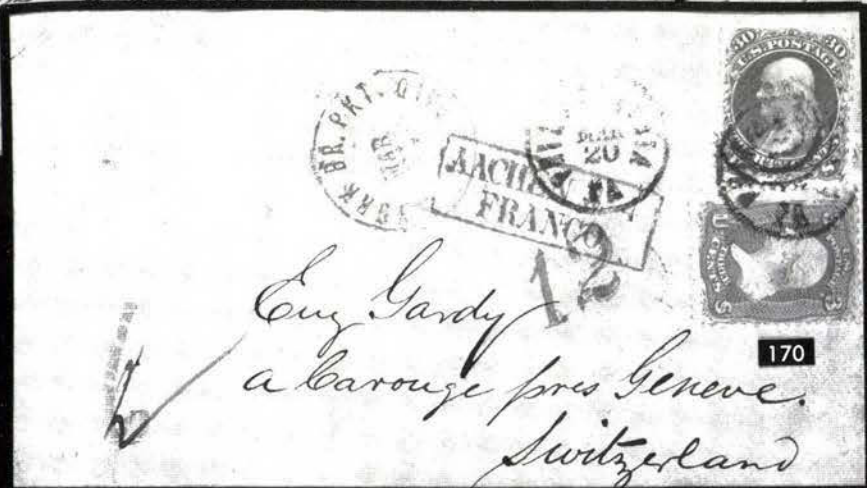 30 30
U.S. POSTAGE
YORK BR. PKT.
MAR
MAR
20
PA
AACHEN
FRANCO
12
U
3
170
Eug Gardy
a Carouge pres Geneve.
Switzerland